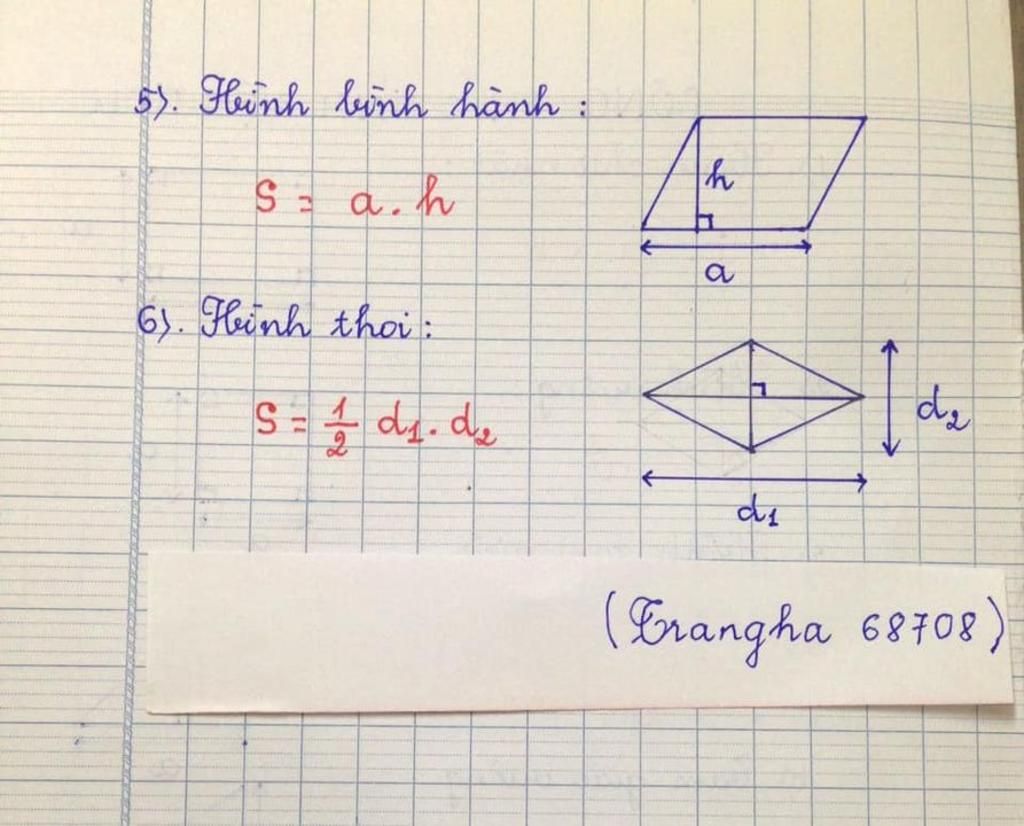 5). Hình bình hành :
h
S = a . h
a
6). Hình thoi :
S = 1/2 d1 . d2
d2
d1
(Trangha 68708)